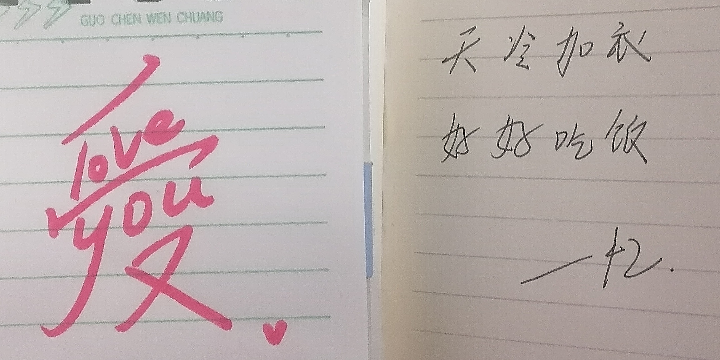 GUO CHEN WEN CHUANG
love
you
爱
天冷加衣
好好吃饭
—42.